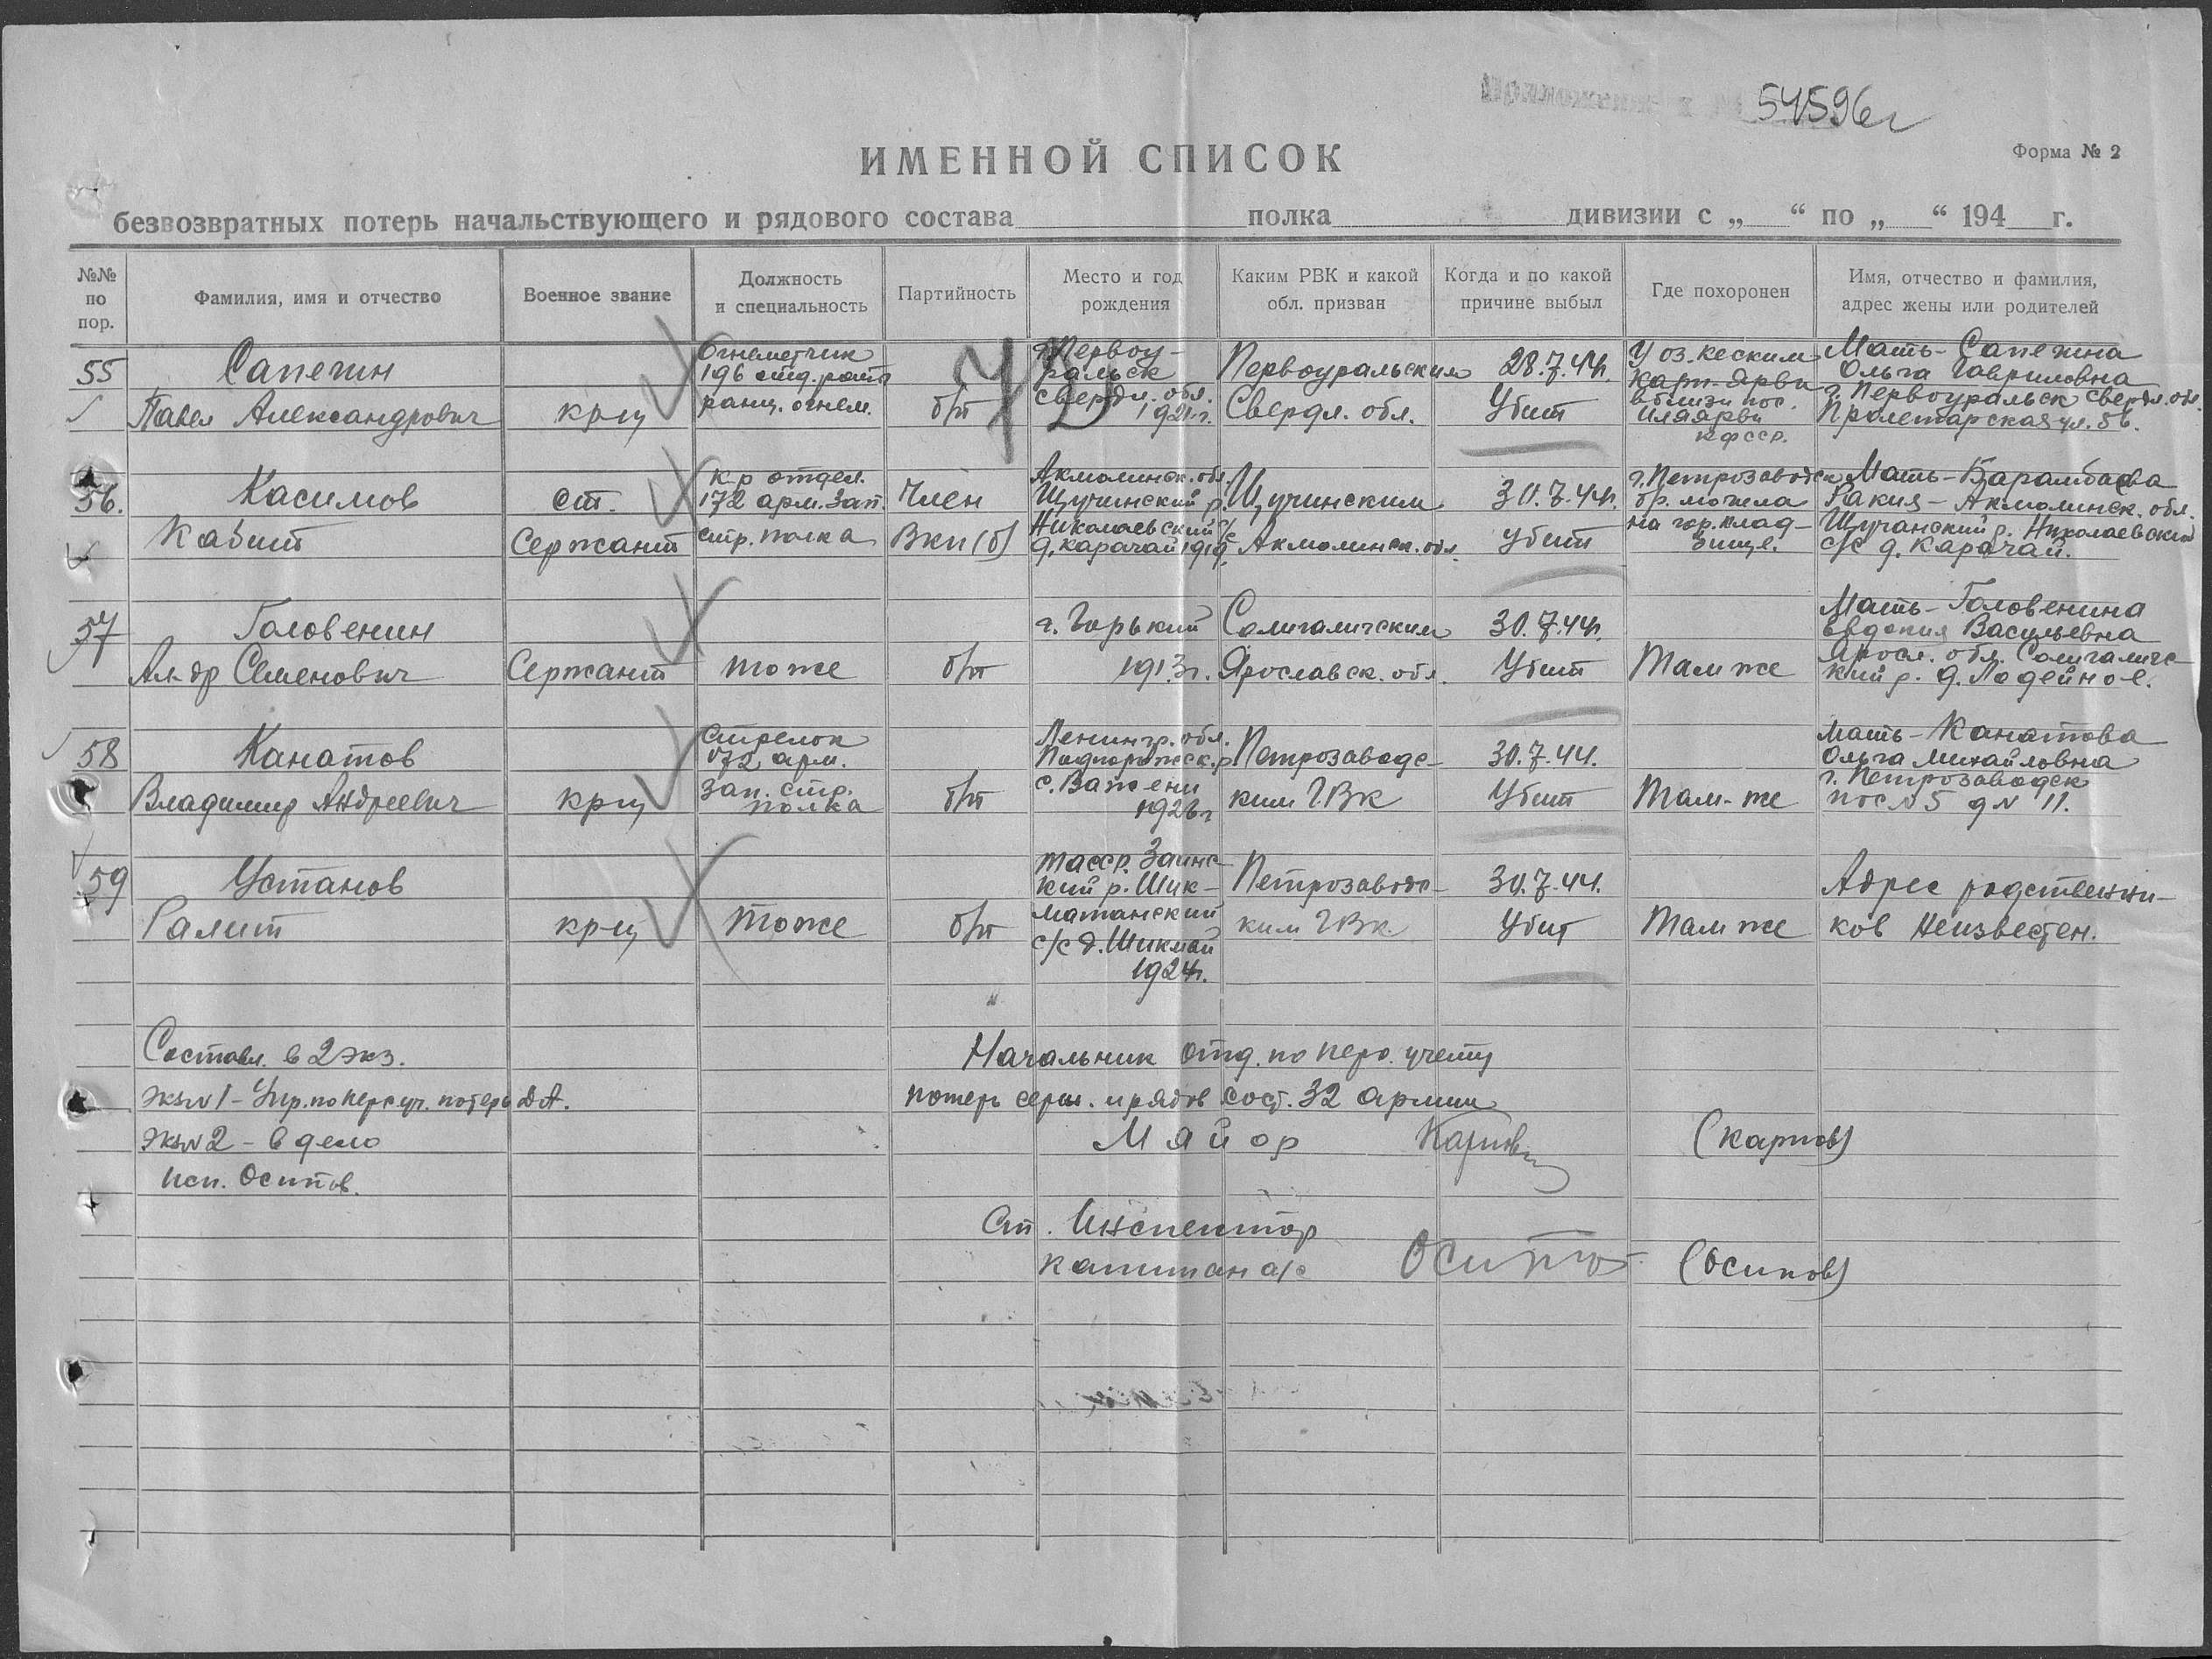 54596г
ИМЕННОЙ СПИСОК
Форма № 2
безвозвратных потерь начальствующего и рядового состава полка дивизии с „ “ по „ “ 194 г.
№№ по пор.
Фамилия, имя и отчество
Военное звание
Должность и специальность
Партийность
Место и год рождения
Каким РВК и какой обл. призван
Когда и по какой причине выбыл
Где похоронен
Имя, отчество и фамилия, адрес жены или родителей
55
Сапегин
Павел Александрович
кр-ц
Огнеметчик
196 отд. рота
ранц. огнем.
б/п
г. Первоу-
ральск
Свердл. обл.
1921 г.
Первоуральским
Свердл. обл.
28.7.44г.
Убит
У оз. Кеским
Карп-Ярви
вблизи пос.
Иляярви
КФССР.
Мать - Сапегина
Ольга Гавриловна
г. Первоуральск Свердл. обл.
Пролетарская ул. 56.
56.
Касимов
Кабит
Ст.
Сержант
к-р отдел.
172 арм. зап.
стр. полка
Член
ВКП(б)
Акмолинск. обл.
Щучинский р.
Николаевский с/с
д. Карачай 1919г.
Щучинским
Акмолинск. обл.
30.7.44г.
убит
г. Петрозаводск
бр. могила
на гор. клад-
бище.
Мать - Барамбаева
Ракия - Акмолинск. обл.
Щучанский р. Николаевский
с/с д. Карачай.
57
Головенин
Ал-др Семенович
Сержант
тоже
б/п
г. Горький
1913г.
Солигаличским
Ярославск. обл.
30.7.44г.
Убит
Там же
Мать - Головенина
Евдокия Васильевна
Яросл. обл. Солигаличс-
кий р. д. Лодейное.
58
Канатов
Владимир Андреевич
кр-ц
Стрелок
172 арм.
зап. стр.
полка
б/п
Ленингр. обл.
Подпорожск. р.
с. Важени
1926г
Петрозаводс-
ким ГВК
30.7.44.
Убит
Там-же
Мать - Канатова
Ольга Михайловна
г. Петрозаводск
пос. №5 д № 11.
59
Установ
Галит
кр-ц
Тоже
б/п
ТАССР. Заинс-
кий р. Шик-
матанский
с/с д. Шикмай
1924г.
Петрозаводс-
ким ГВК
30.7.44.
Убит
Там же
Адрес родственни-
ков неизвестен.
Составл. в 2 экз.
Экз №1 - Упр. по перс. уч. потерь ДА.
Экз №2 - в дело
Исп. Осипов.
Начальник отд. по перс. учету
потерь серж. и рядов сост. 32 армии
Майор Карпов (Карпов)
Ст. Инспектор
капитан а/с Осипов (Осипов)